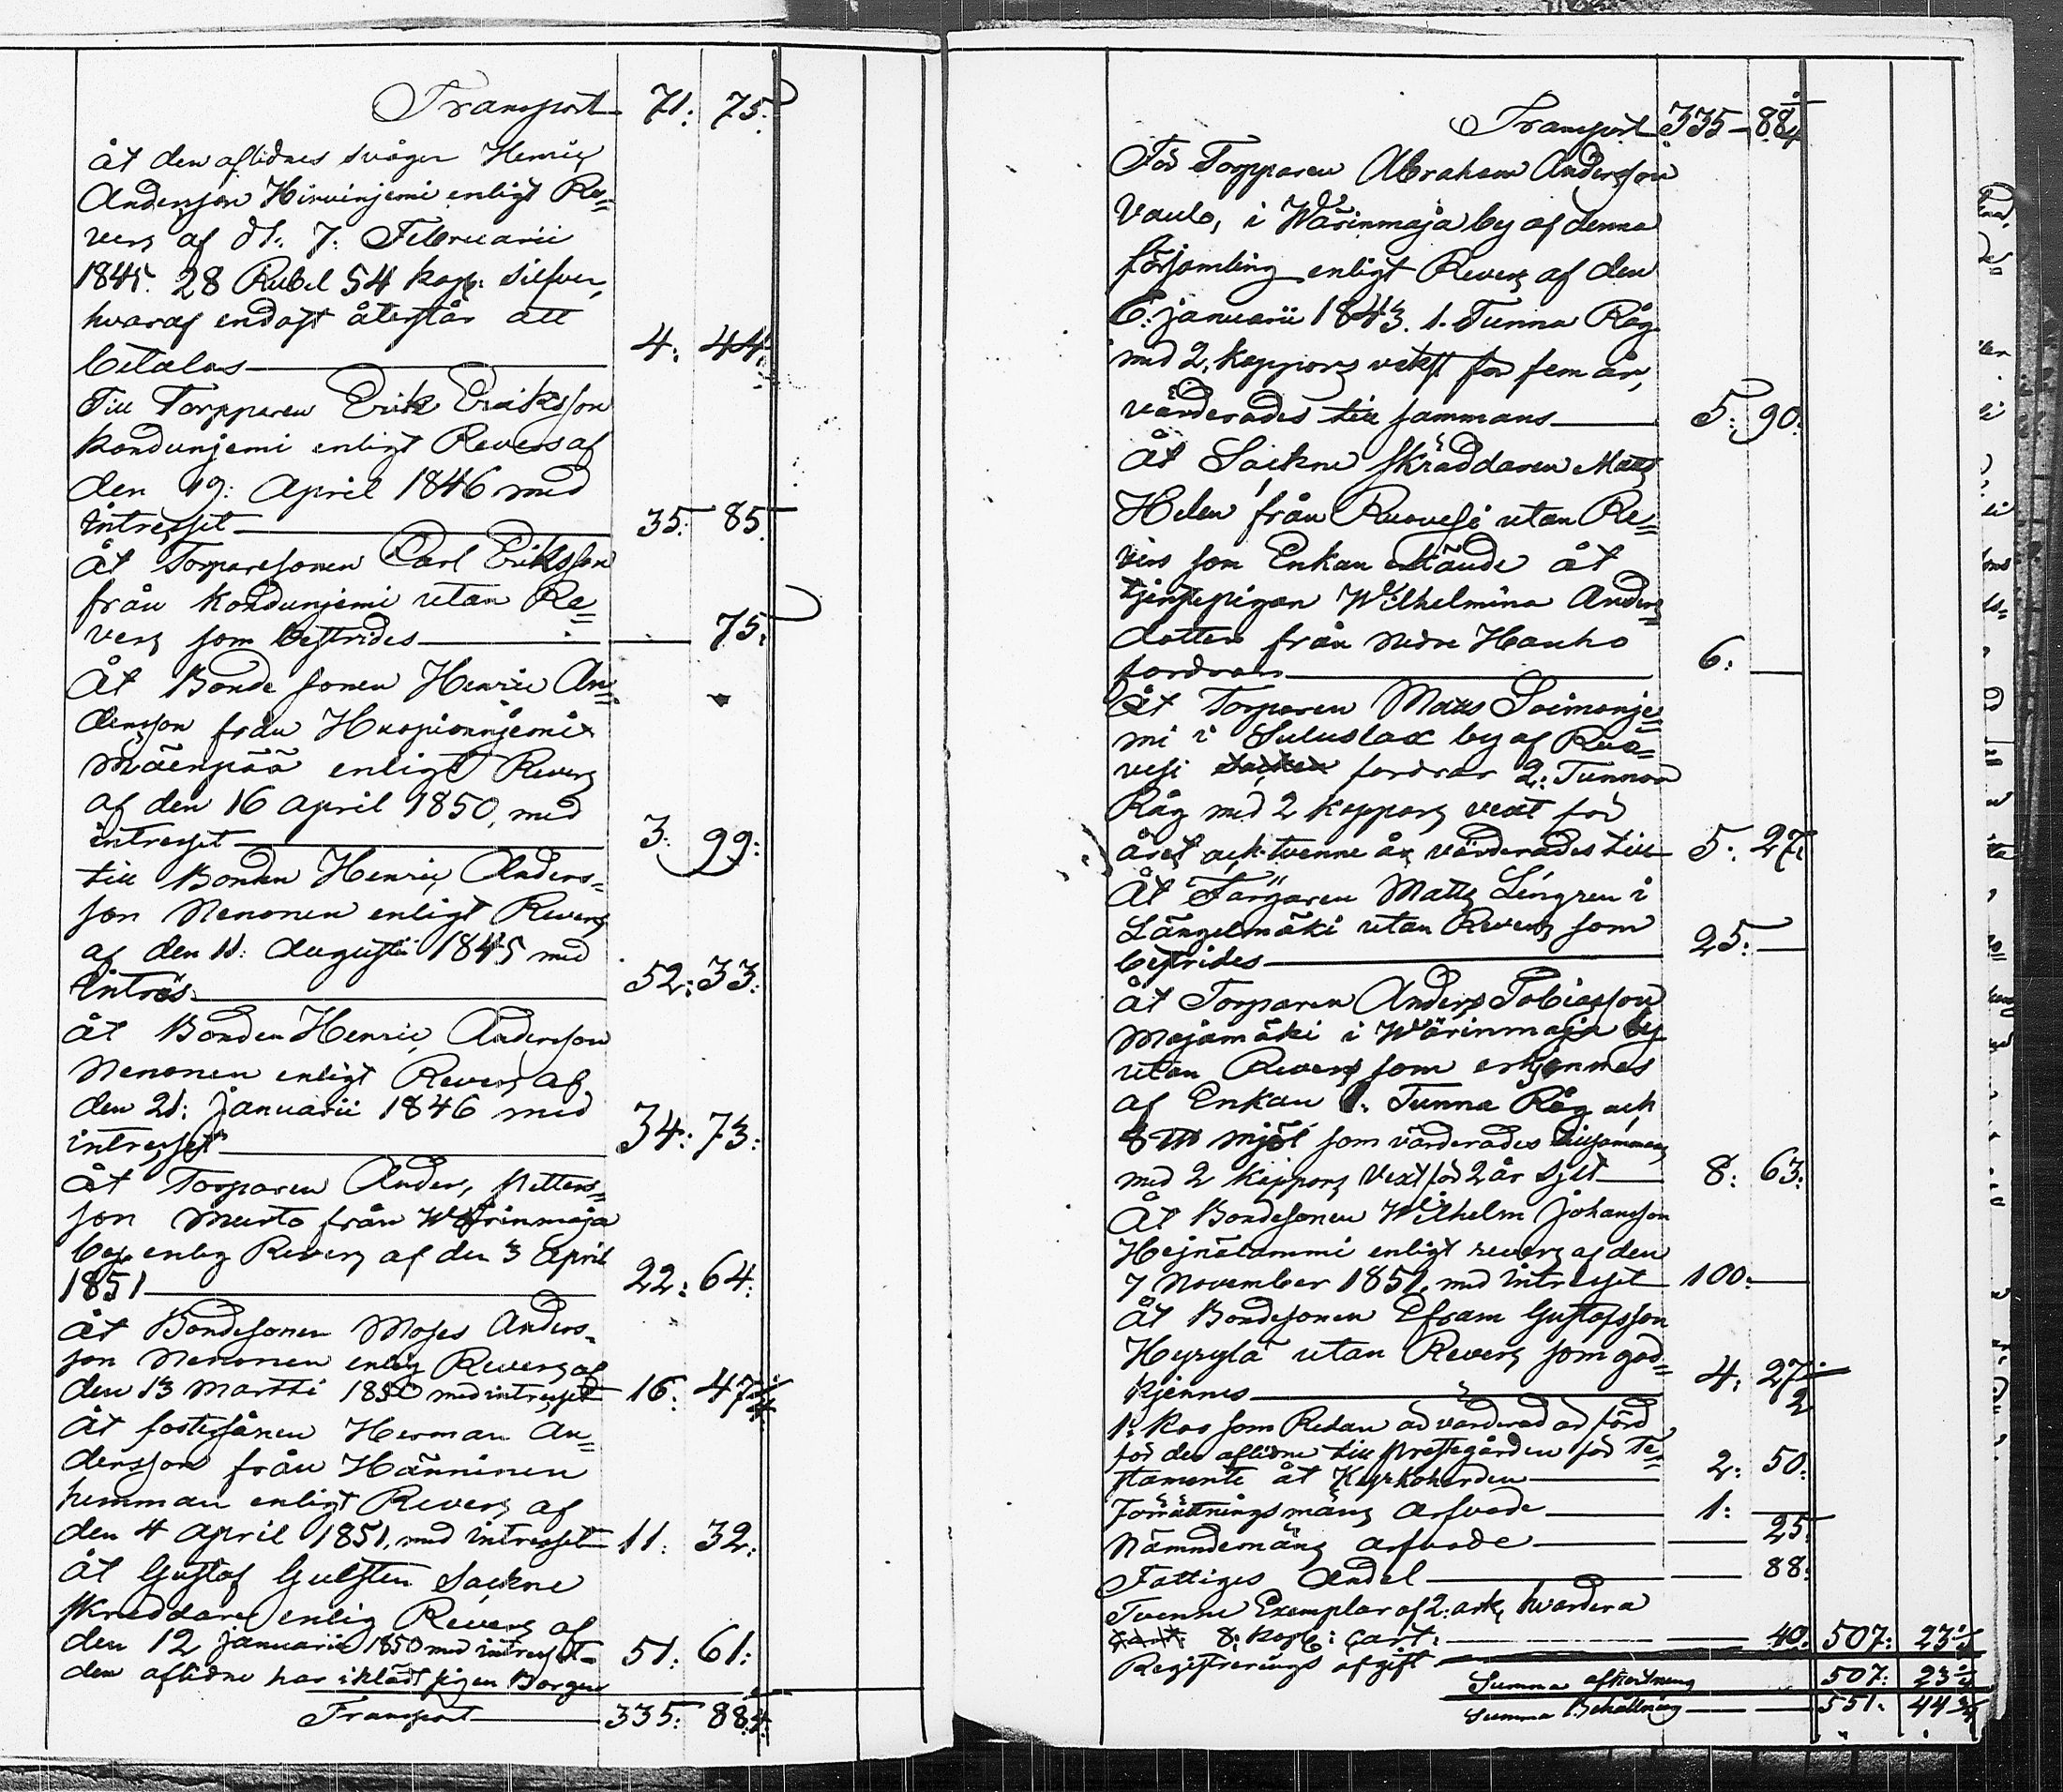 Transport 71: 75:
åt den aflidnes svåger Henric
Andersson Hirvinjemi enligt Re=
vers af d 7: Februarii
1845. 28 Rubel 54 kop: silfver,
hvaraf endast återstår att
betalas 4: 44:
Till Torpparen Erik Eriksson
Kondunjemi enligt Revers af
den 19: April 1846 med
intresset 35: 85.
Åt Torparesonen Carl Eriksson
från Kondunjemi utan Re=
vers som bestrides 75:
Åt Bonde sonen Henric An=
dersson från
Mäenpää enligt Revers
af den 16 April 1850, med
intresset 3: 99:
till Bonden Henric Anders=
son Nenonen enligt Revers
af den 11: Augusti 1845 med
Intrès 52: 33:
Åt Bonden Henric Andersson
Nenonen enligt Revers af
den 21: Januarii 1846 med
intresset 34: 73:
Åt Torparen Anders Petters=
son Murto från Wärinmaja
by enlig Revers af den 3 April
1851 22: 64:
Åt Bondesonen Moses Anders=
son Nenonen enlig Revers af
den 13 Martii 1850 med intresset 16: 47
Åt fostersånen Herman An=
dersson från Hänninen
hemman enligt Revers af
den 4 April 1851, med intresset 11: 32:
Åt Gustaf Gulsten Sockne
skreddare enlig Revers af
den 12 Januarii 1850 med intresset 51: 61:
den aflidne har iklädt sig en Borgen
Transport 335: 88
Transport 335 88
För Torpparen Abraham Andersson
Vaulo, i Wärinmaja by af denna
församling enligt Revers af den
6: Januarii 1843. 1. Tunna Råg
med 2, kappors vekst för fem år,
värderades till sammans 5: 90:
Åt Sockne skräddaren Matts
Helen från Ruovesi utan Re=
vers som Enkan erkände åt
tjenstepigan Wilhelmina Anders
dotter från Nedre Hanho
fordran 6:
Åt Torparen Matts Soimonje=
mi i Suluslax by af Ruo=
vesi fordrar 2: Tunnor
Råg med 2 kappors vext för
året och tvenne år värderades till 5: 27
Åt Färgaren Matts Lingren i
Längelmäki utan Revers som
bestrides 25:
Åt Torparen Anders Tobiasson
Majamäki i Wärinmaja by
utan Revers som erkjennes
af Enkan 1: Tunna Råg och
8 mjöl som värderades tillsammans
med 2 kappors vext för 2 år 8: 63:
Åt Bondesonen Wilhelm Johansson
Hejnälammi enligt revers af den
7 November 1851, med intresset 100:
Åt Bondesonen Efram Gustafsson
Hyrylä utan Revers som god=
kjennes 4: 27
1: Ko som Redan är värderad är förd
för den aflidne till Prestegården för Te=
stamente åt Kyrkoherden 2: 50:
Förrättningsmans arfvode 1:
Nämndemäns arfvode 25:
Fattiges Andel 88:
Tvenne Exemplar af 2: ark, hvardera
8: kop: cart: 40. 507: 23
Registrerings afgift
Summa afkortning 507: 23
Summa Behållning 551: 44 3/4